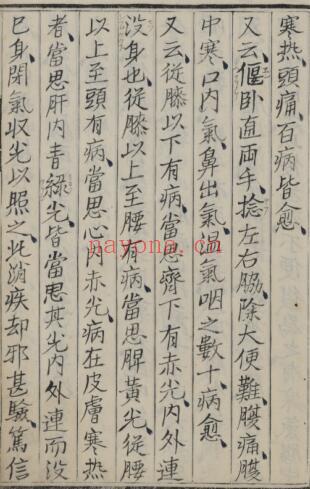 寒热頭痛百病皆愈
又云偃卧直両手捻左右脇除大便難腹痛腹
中寒口内氣鼻出氣温氣咽之數十病愈
又云從膝以下有病當思齊下有赤光内外連
没身也從膝以上至腰有病當思脾黄光從腰
以上至頭有病當思心内赤光病在皮膚寒热
者當思肝内青緑光皆當思其光内外連而没
已身閉氣収光以照之此消疾却邪甚驗篤信
nayona.cn